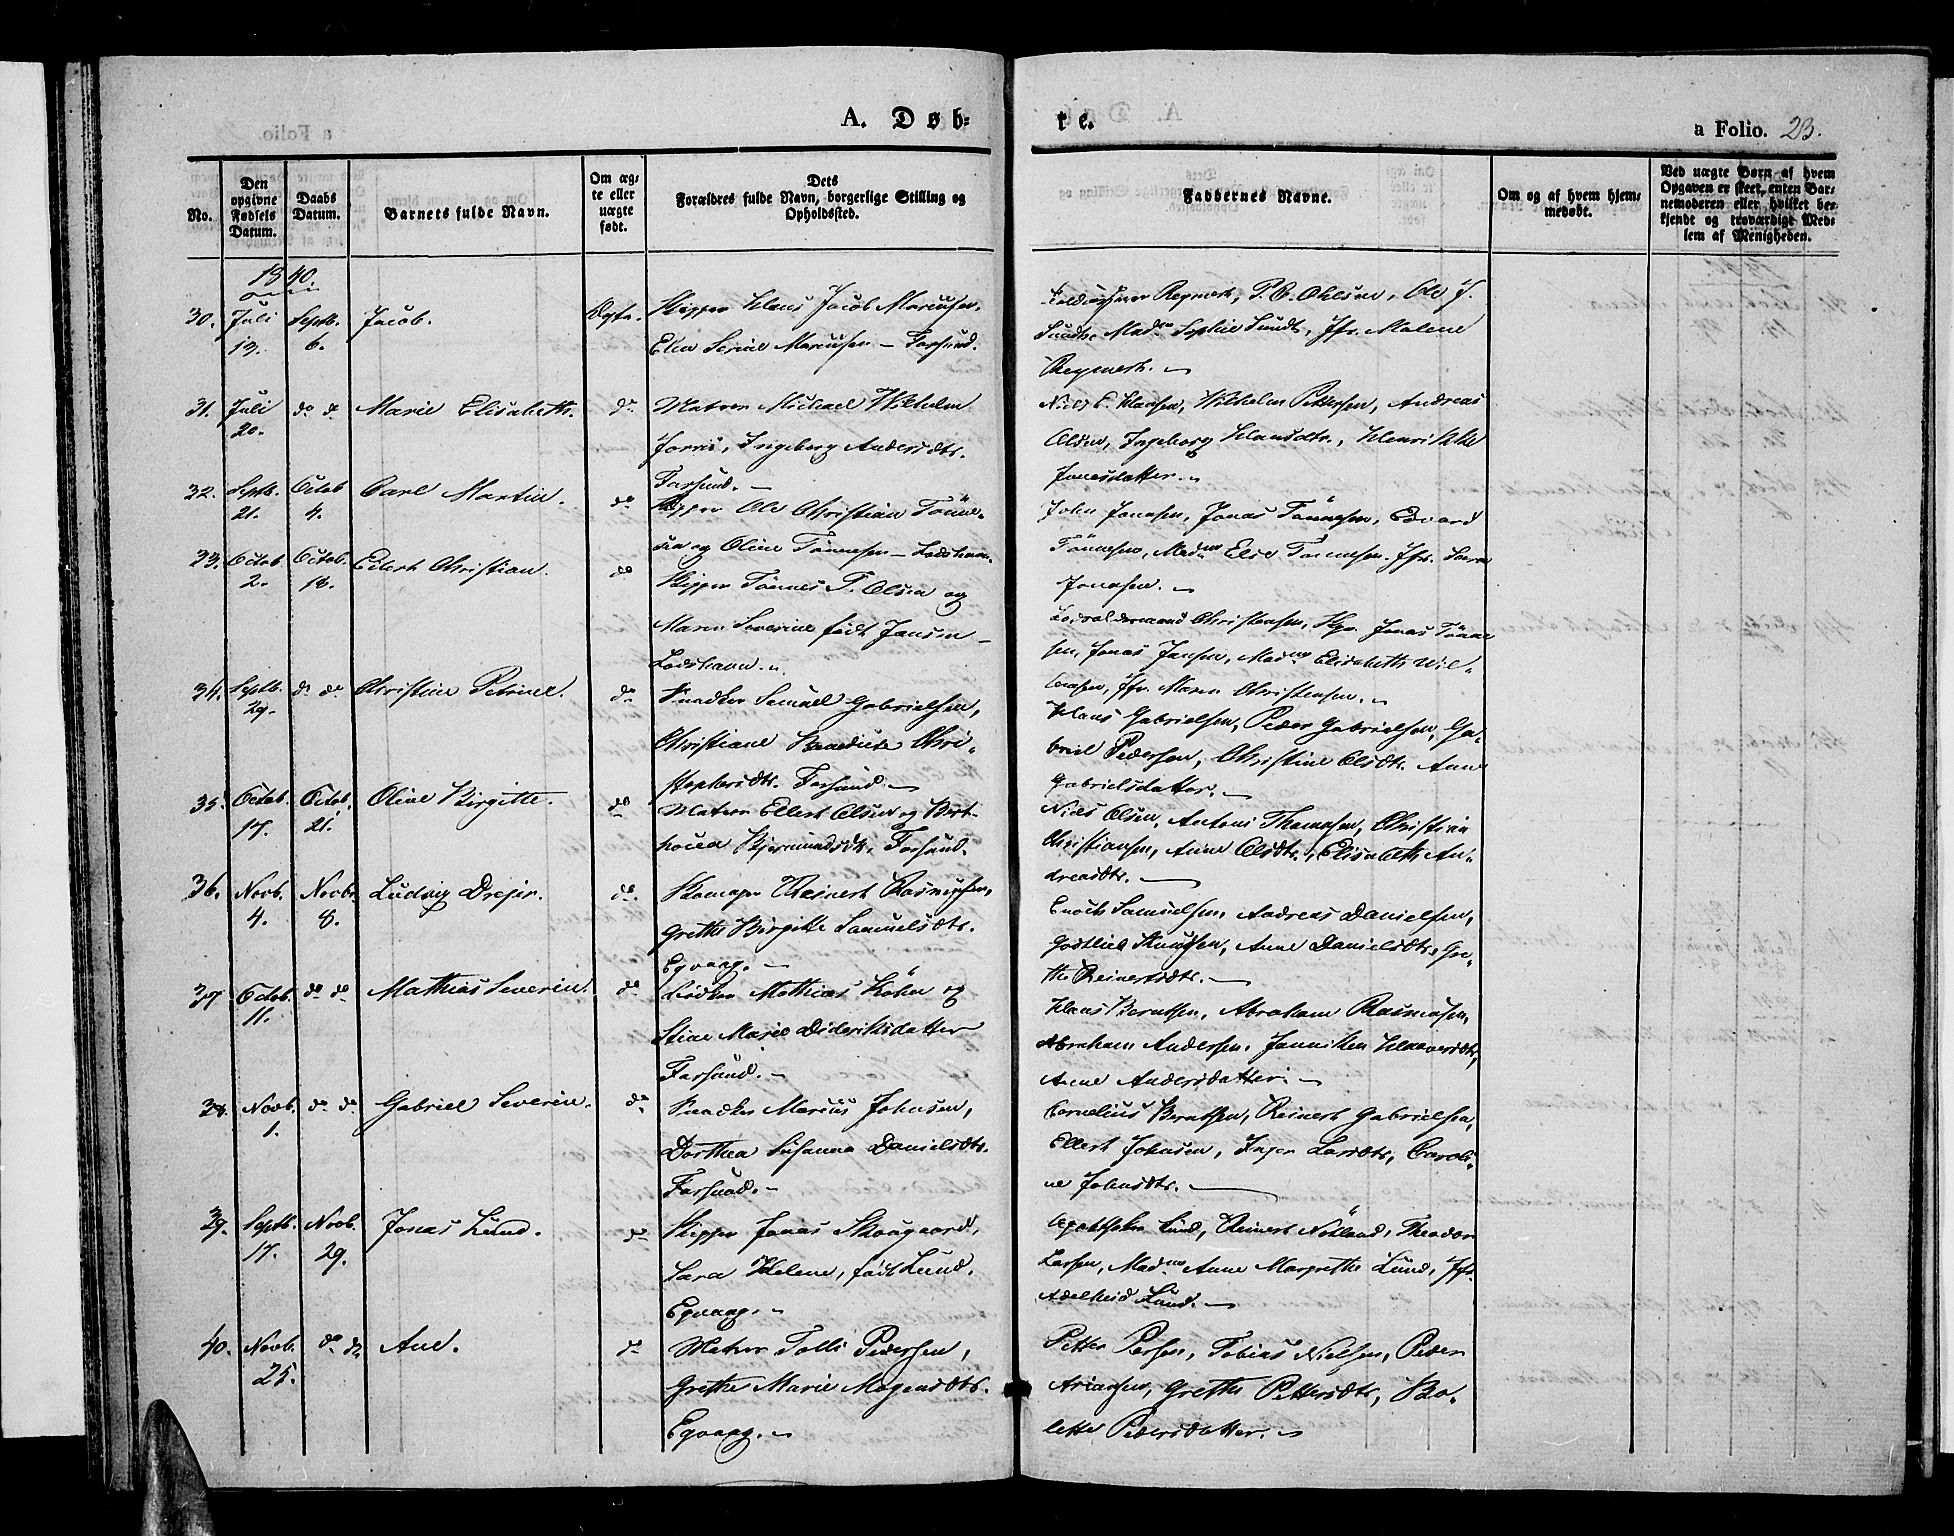 A. Døb-
re.
a Folio. 23.
No.
Den opgivne Fødsels Datum.
Daabs Datum.
Barnets fulde Navn.
Om ægte eller uægte født.
Dets Forældres fulde Navn, borgerlige Stilling og Opholdssted.
Faddernes Navne.
Om og af hvem hjemmedøbt.
Ved uægte Børn af hvem Opgaven er skeet, enten Barnemoderen eller hvilket bekjendt og troværdigt Medlem af Menigheden.
1840.
30. Juli 19. Septb. 6. Jacob. Ægte. Skipper Klaus Jacob Marcussen.
Elen Serine Marcussen – Farsund.
Reymert, P. C. Ohlsen, Ole J.
Sundt, Madme Sophie Sundt, Jfr. Malene
Reymert. –
31. Juli 20. do do Marie Elisabeth. do Matros Michael Wilhelm
Ingeborg Andersdtr.
Farsund. –
Niels C. Klausen, Wilhelm Pettersen, Andreas
Olsen, Ingeborg Klausdtr., Henrikke
Jonasdatter. –
32. Septb. 21. Octob 4. Carl Martin. do Skipper Ole Christian Tönne-
sen og Oline Tönnesen – Lodshavn.
John Jonassen, Jonas Tönnesen, Edvard
Tönnesen, Madme Else Tönnesen. Jfr. Sara
Jonassen. –
33. Octob. 2. Octob. 18. Edert Christian. do Skipper Tönnes T. Olsen og
Maren Severine født Jansen –
Lodshavn. –
Lodsoldermand Christensen, Skpr. Jonas Tönne
sen, Jonas Jansen, Madme Elisabeth Wil-
Jfr. Maren Christensen. –
34. Septb. 29. do do Christine Petrine. do Snedker Samuel Gabrielsen,
Christiane Benedicte Chri-
stophersdtr. Farsund. –
Klaus Gabrielsen, Peder Gabrielsen, Ga-
briel Pedersen, Christine Olsdtr. Anne
Gabrielsdatter. –
35. Octob. 17. Octob. 21. Oline Birgitte. do Matros Ellert Olsen og Bert-
Farsund.
Niels Olsen, Antoni Thomassen, Christian
Christiansen, Anne Olsdtr., Elisabeth An-
dreasdtr. –
36. Novb. 4. Novbr. 8. Ludvig Drejer. do. Reinert Rasmussen,
Grethe Birgitte Samuelsdtr.
Eqvaag. –
Enoch Samuelsen, Andreas Danielsen,
Gottlieb Knudsen, Anne Danielsdtr. Gre-
the Reinertsdtr. –
37. Octob. 11. do do Mathias Severin. do Bödker Mathias Köhn og
Stine Marie Dideriksdatter
Farsund. –
Klaus Berntsen, Abraham Rasmussen,
Abraham Andersen. Janniken
Anne Andersdatter. –
38. Novb. 1. do do Gabriel Severin. do Snedker Marcus Johnsen,
Dorthea Susanna Danielsdtr.
Farsund. –
Cornelius Berntsen, Reinert Gabrielsen,
Ellert Johnsen, Inger Larsdtr, Caroli-
ne Johnsdtr. –
39. Septb. 17. Novb. 29. Jonas Lund. do Skipper Jonas Skougaard,
Sara Helene, født Lund.
Eqvaag. –
Apotheker Lund, Reinert Nöhland, Theodor
Larsen, Madme Anne Margrethe Lund, Jfr.
Adelheid Lund. –
40. Novb. 25. do do Ane. do Matros Tolli Pedersen,
Grethe Marie Mogensdtr.
Eqvaag. –
Petter Persen, Tobias Nielsen, Peder
Ariansen, Grethe Pettersdtr, Bo-
lette Pedersdatter. –